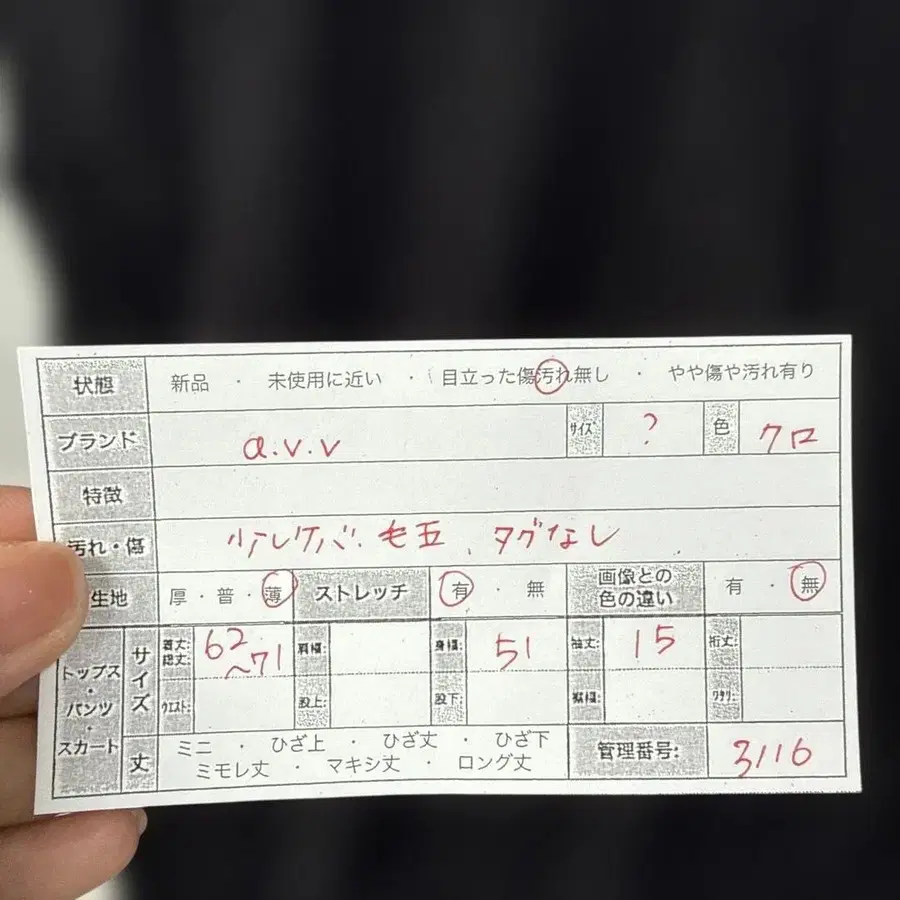 状態 新品 ・ 未使用に近い ・ 目立った傷汚れ無し ・ やや傷や汚れ有り
ブランド a.v.v サイズ ? 色 クロ
特徴
汚れ・傷 少しケバ、毛玉、タグなし
生地 厚・普・薄 ストレッチ 有・無 画像との色の違い 有・無
トップス・パンツ・スカート サイズ 着丈: 総丈: 62~71 肩幅: 身幅: 51 袖丈: 15 裄丈:
ウエスト: 股上: 股下: 裾幅: ワタリ:
丈 ミニ ・ ひざ上 ・ ひざ丈 ・ ひざ下
ミモレ丈 ・ マキシ丈 ・ ロング丈
管理番号: 3116